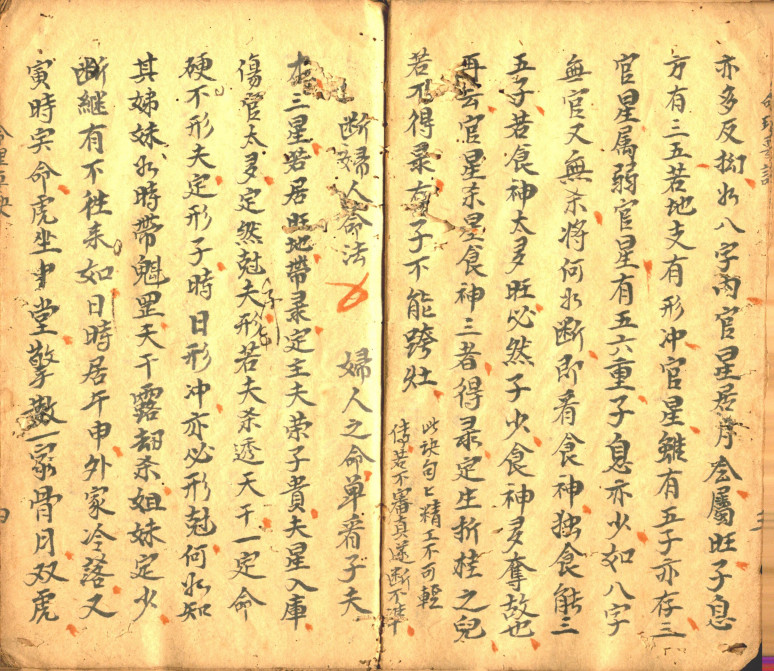 亦多反拗如八字內官星居月令屬旺子息
方有三五若地支有形冲官星雖有五子亦存三
官星属弱官星有五六重子息亦少如八字
無官又無杀將何如断即看食神独食能三
五子若食神太多旺必然子少食神多奪故也
再去官星杀星食神三者得彔定生折桂之兒
若不得彔有子不能跨灶
此诀句匕精工不可輕
傳若不審真遂断不準
断婦人命法
婦人之命单看子夫
三星若居旺地帶彔定主夫荣子貴夫星入庫
傷官太多定然尅夫形子若夫杀透天干一定命
硬不形夫定形子時日形冲亦必形尅何如知
其姊妹如時帶魁罡天干露刧杀姐妹定少
断継有不性来如日時居午申外家冷落又
寅時实命虎坐中堂擎數一家骨月双虎